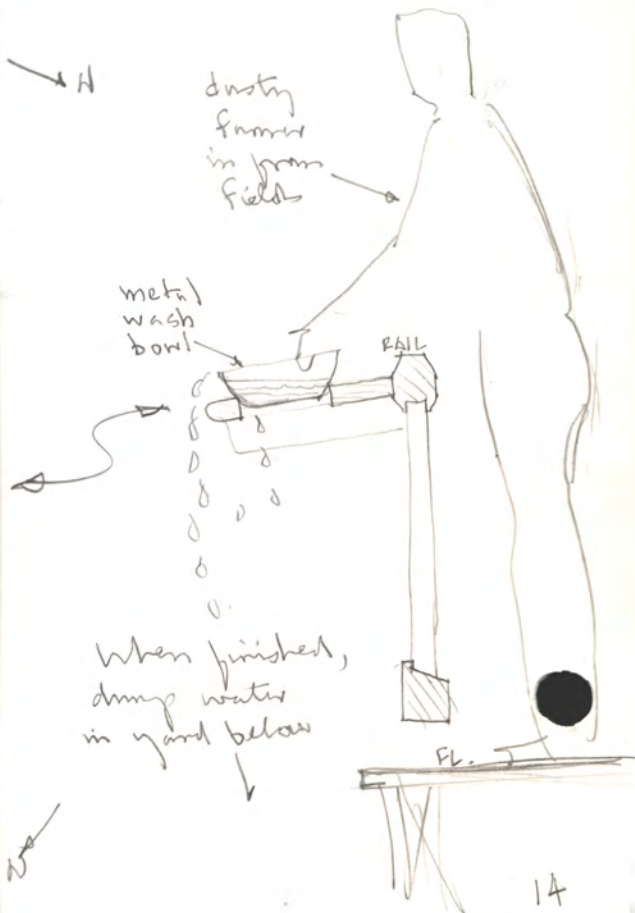 H
dusty
farmer
in from
fields
metal
wash
bowl
RAIL
When finished,
dump water
in yard below
FL.
N
14